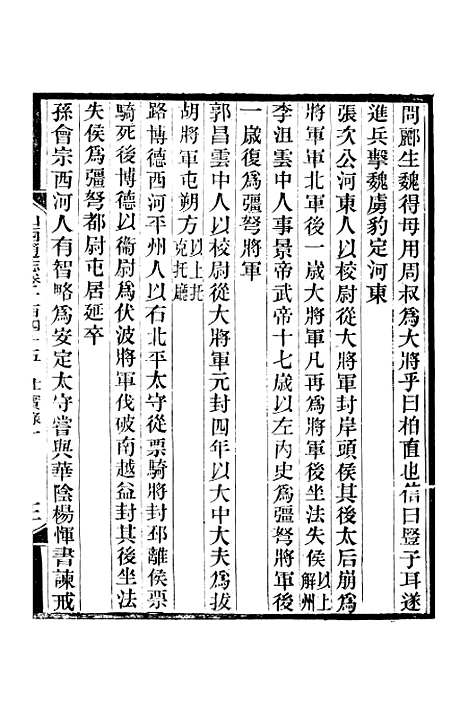 問酈生魏得毋用周叔爲大將乎曰柏直也信曰豎子耳遂
進兵擊魏虜豹定河東
張次公河東人以校尉從大將軍封岸頭侯其後太后崩爲
將軍軍北軍後一歲大將軍凡再爲將軍後坐法失侯以上解州
李沮雲中人事景帝武帝十七歲以左內史爲彊弩將軍後
一歲復爲彊弩將軍
郭昌雲中人以校尉從大將軍元封四年以大中大夫爲拔
胡將軍屯朔方以上托克托廳
路博德西河平州人以右北平太守從票騎將封邳離侯票
騎死後博德以衞尉爲伏波將軍伐破南越益封其後坐法
失侯爲彊弩都尉屯居延卒
孫會宗西河人有智略爲安定太守嘗與華陰楊惲書諫戒
卷一百四十五 仕實錄一 三